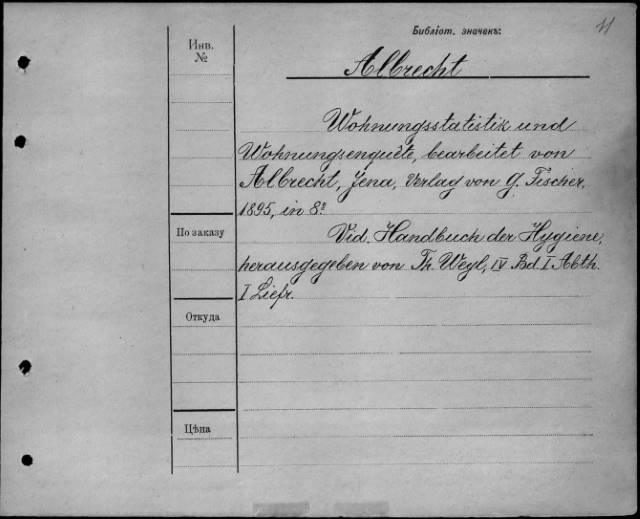 Библіот. значекъ:
11
Инв.
№
Albrecht
Wohnungsstatistik und
Wohnungsenquête, bearbeitet von
Albrecht, Jena, Verlag von G. Fischer,
1895, in 8º.
По заказу
Vid. Handbuch der Hygiene,
herausgegeben von Th. Weyl, IV Bd I Abth.
I Liefr.
Откуда
Цѣна